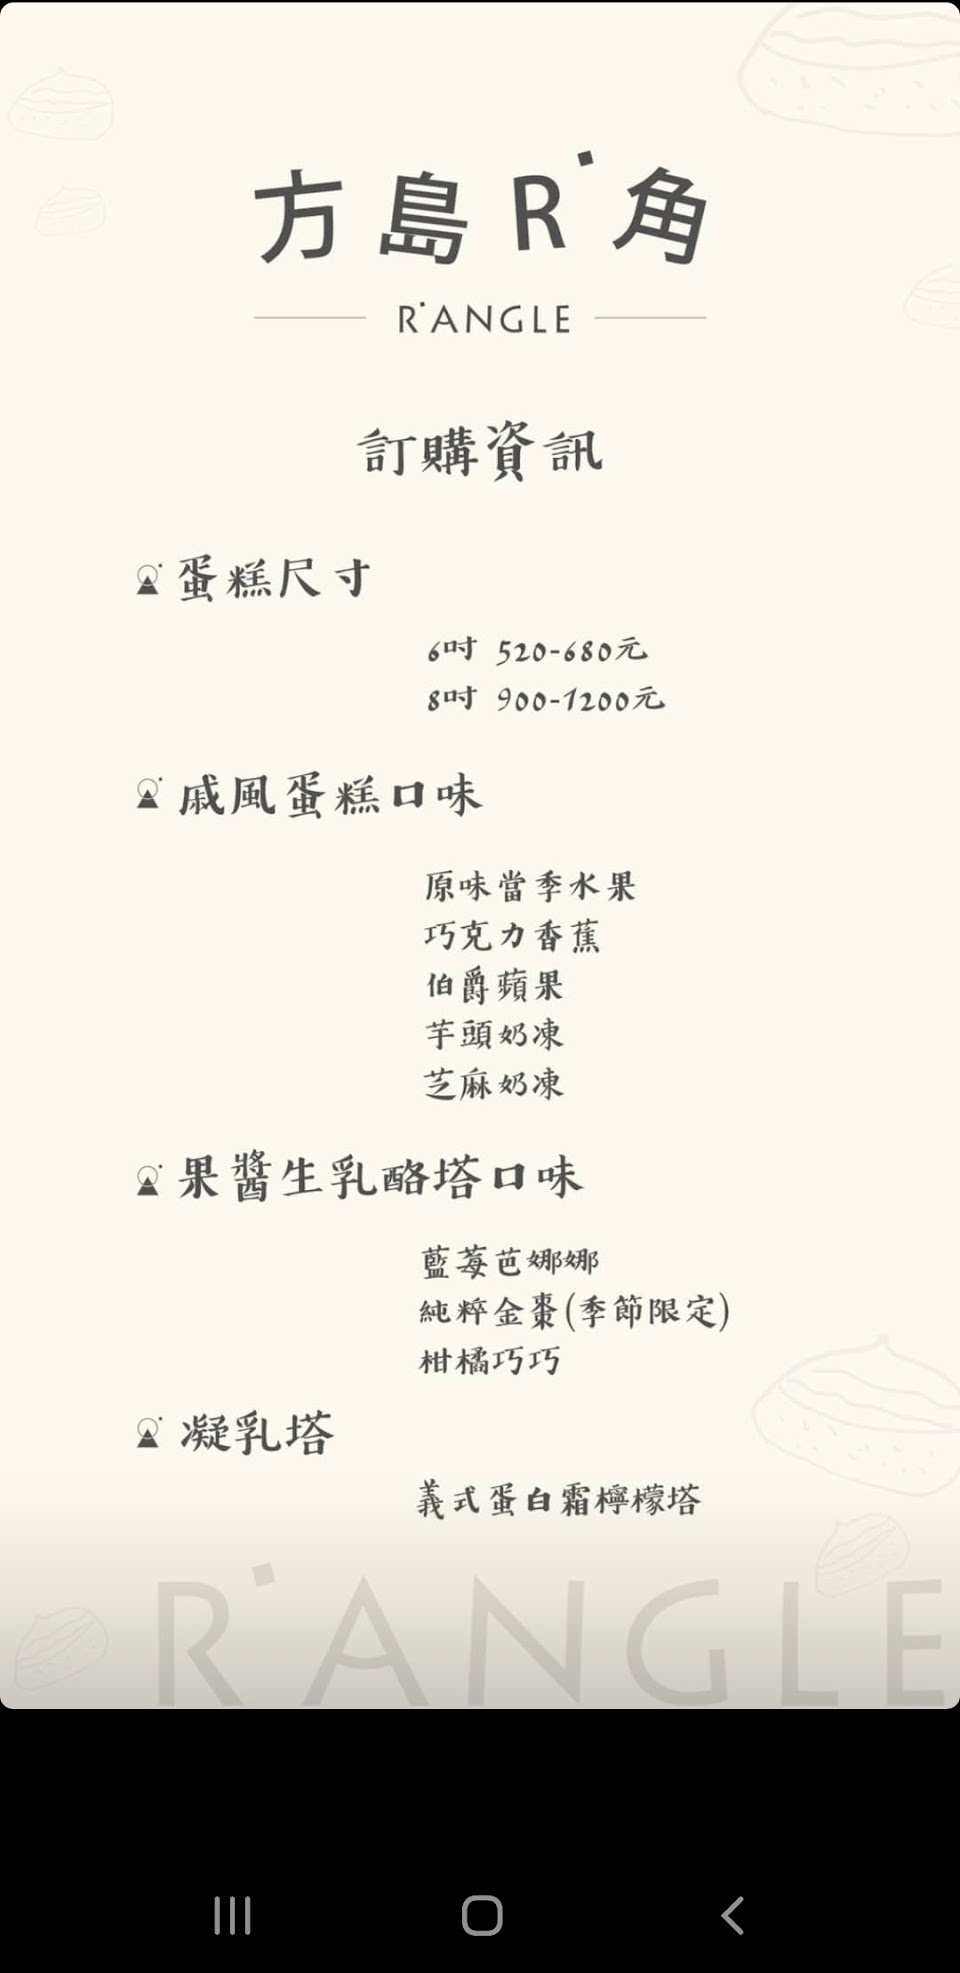 方島R角
R'ANGLE
訂購資訊
蛋糕尺寸
6吋 520-680元
8吋 900-1200元
戚風蛋糕口味
原味當季水果
巧克力香蕉
伯爵蘋果
芋頭奶凍
芝麻奶凍
果醬生乳酪塔口味
藍莓芭娜娜
純粹金棗(季節限定)
柑橘巧巧
凝乳塔
義式蛋白霜檸檬塔
R'ANGLE